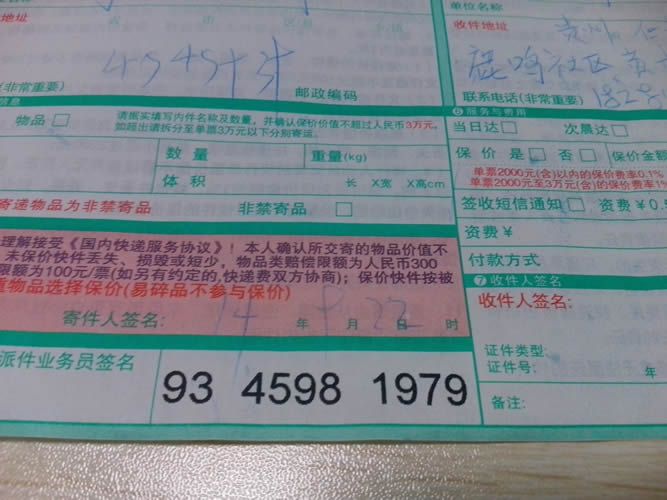 单位名称
收件地址
贵州 仁
鹿鸣社区
(非常重要)
邮政编码
联系电话(非常重要)
信息
物品
请据实填写内件名称及数量,并确认保价价值不超过人民币3万元,
如超出请拆分至单票3万元以下分别寄运。
数 量
重量(kg)
体 积
长 X宽 X高cm
寄递物品为非禁寄品
非禁寄品
6 服务与费用
当日达
次晨达
保 价 是 否
保价金额
单票2000元(含)以内的保价费率0.1%
单票2000元至3万元(含)的保价费率1%
签收短信通知
资费¥0.
资费¥
付款方式
理解接受《国内快递服务协议》!本人确认所交寄的物品价值不
未保价快件丢失、损毁或短少,物品类赔偿限额为人民币300
限额为100元/票(如另有约定的,快递费双方协商);保价快件按被
值物品选择保价(易碎品不参与保价)
寄件人签名:
14 年 9 月 22 日 时
7 收件人签名
收件人签名:
证件类型:
证件号:
年
派件业务员签名
93 4598 1979
备注: